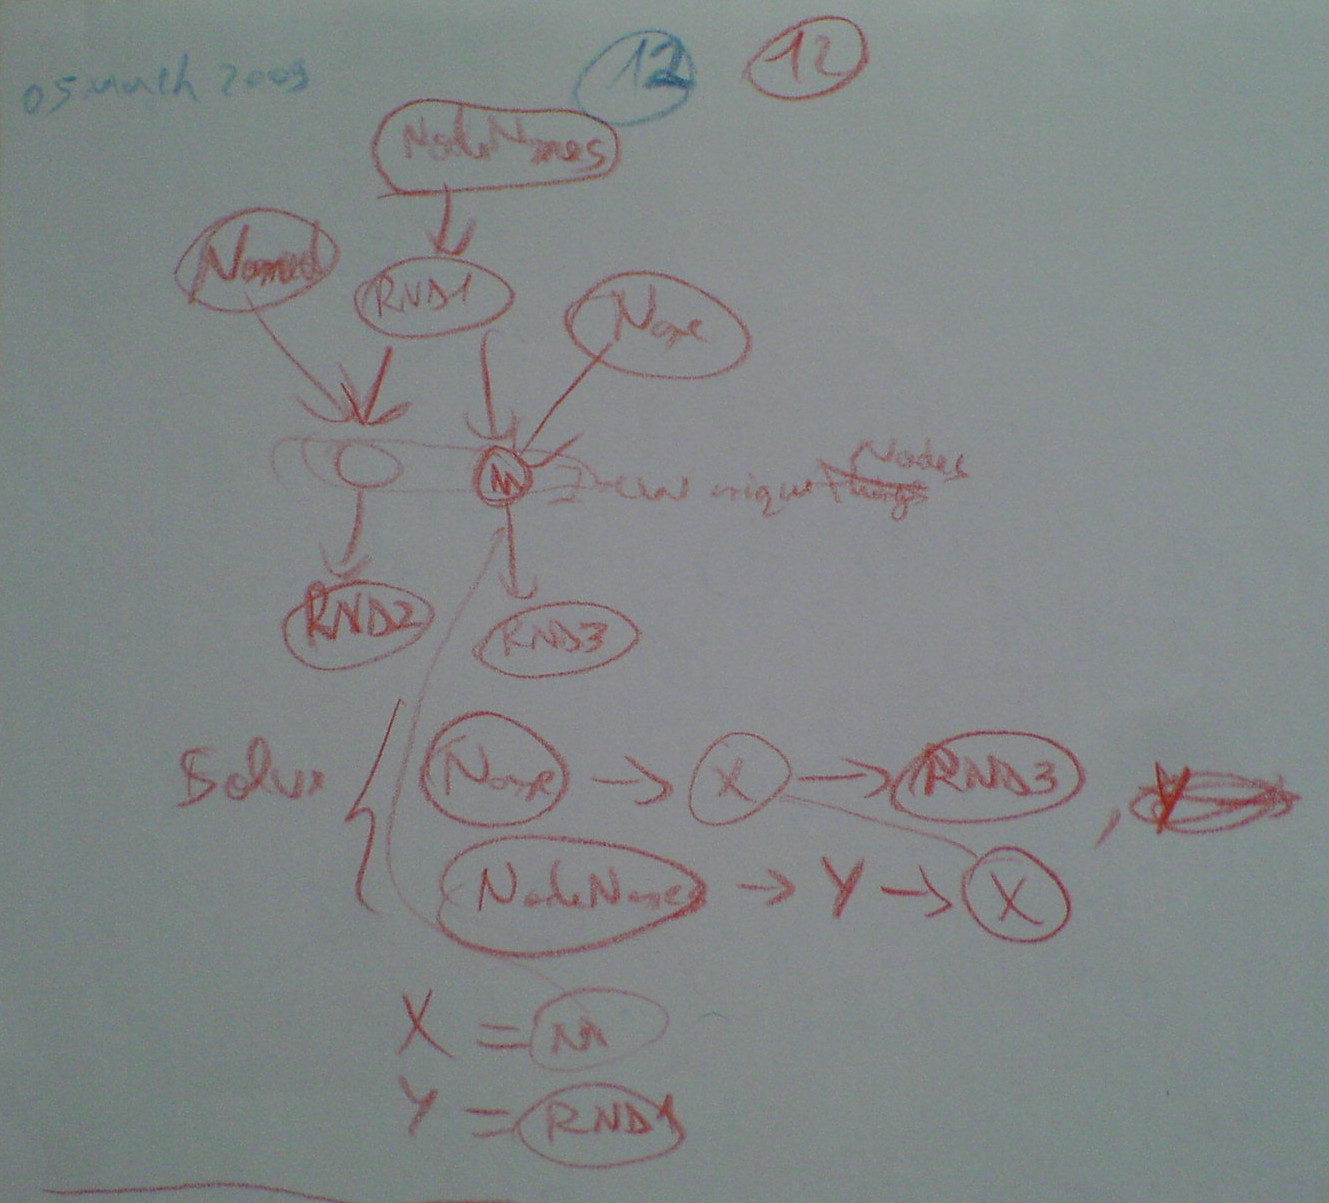 05 March 2009 12 12
NodeNames
Named RND1 Name
m new unique Things Nodes
RND2 RND3
Solve Name → X → RND3 , Y
NodeNames → Y → X
X = m
Y = RND1